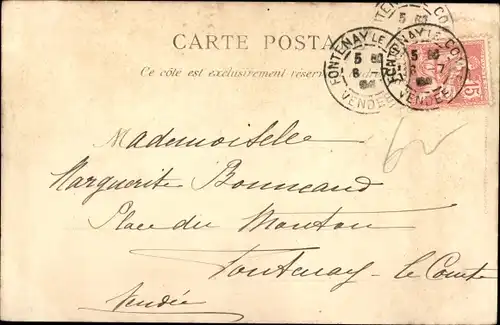 CARTE POSTA
Ce côté est exclusivement réser
FONTENAY LE CO
5
VENDÉE
15
Mademoiselle
Marguerite Bonneaud
Place du Mouton
Fontenay-le Comte
Vendée